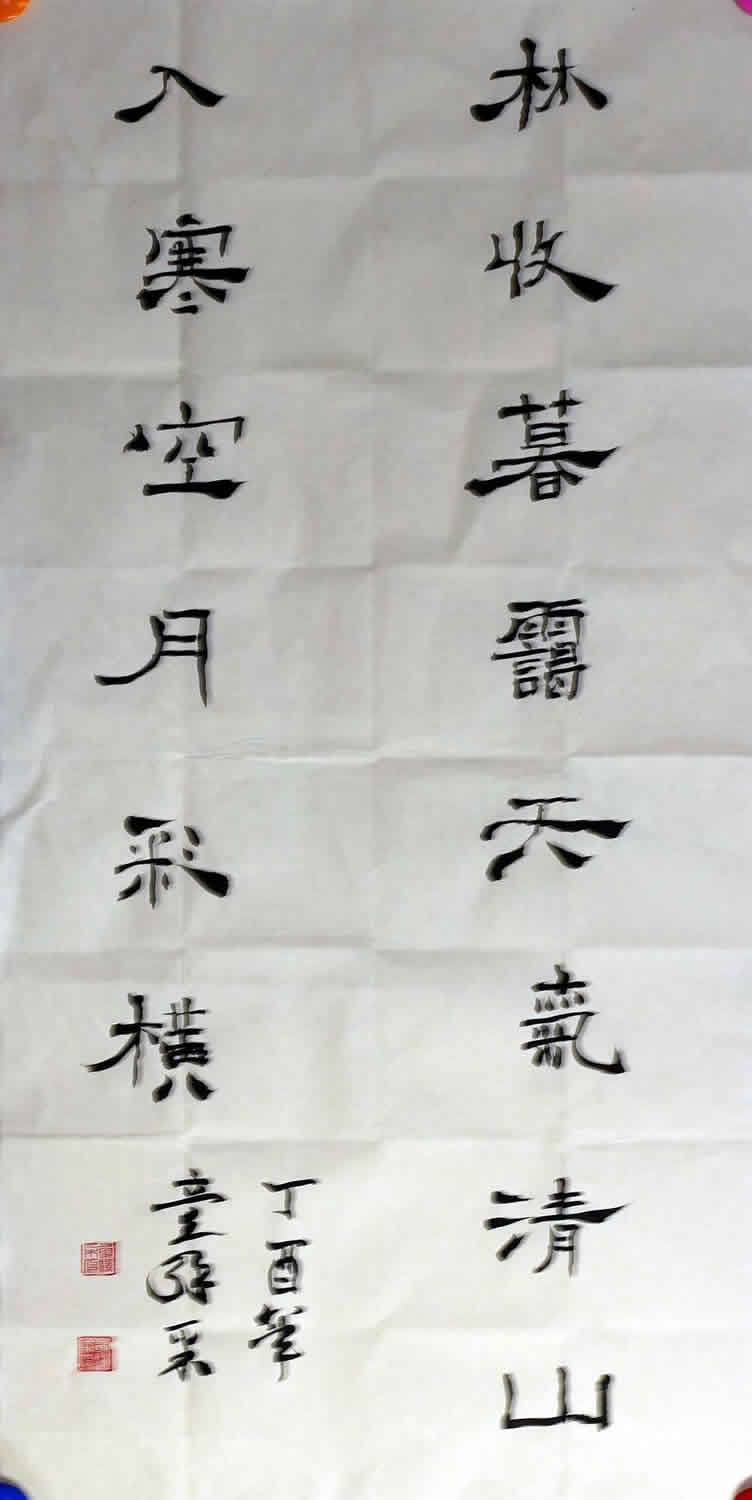 林收暮靄天氣清山
入寒空月彩橫
丁酉年